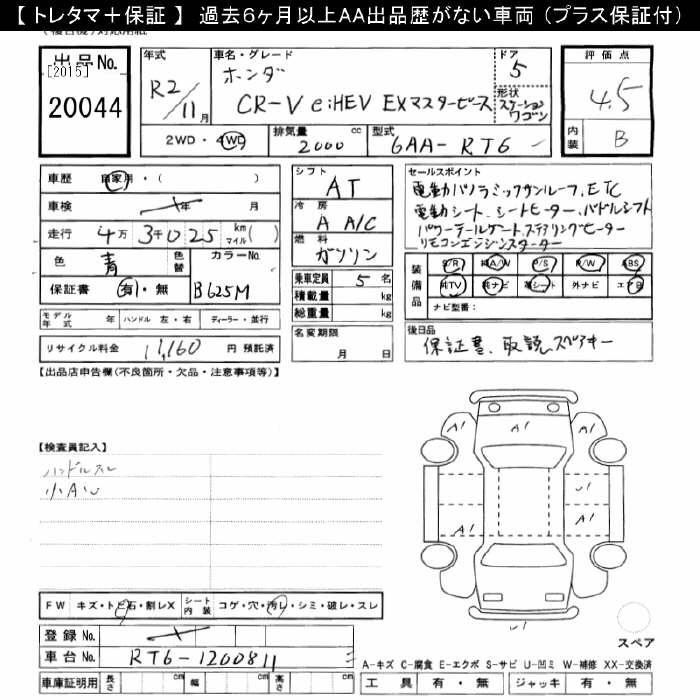 【 トレタマ＋保証 】 過去６ヶ月以上ＡＡ出品歴がない車両（プラス保証付）
出品No.
[2015]
20044
年式
R2/11月
車名・グレード
ホンダ
CR-V e:HEV EXマスターピース
ドア
5
形状
ステーションワゴン
2WD・4WD
排気量
2000 cc
型式
6AA-RT6
評価点
4.5
内装
B
車歴
自家用・(　　)
車検
年　月
走行
4万3千025 km マイル(　)
色
青
色替
カラーNo.
B625M
保証書
有・無
モデル年式
年
ハンドル
左・右
ディーラー・並行
リサイクル料金
11,160
円 預託済
シフト
AT
冷房
A A/C
燃料
ガソリン
乗車定員
5 名
積載量
kg
総重量
kg
名変期限
月　日
セールスポイント
電動パノラミックサンルーフ、ETC
電動シート、シートヒーター、パドルシフト
パワーテールゲート、ステアリングヒーター
リモコンエンジンスターター
装備品
S/R
純A/W
P/S
P/W
ABS
純TV
純ナビ
革シート
外ナビ
エアB
ナビ型番：
後日品
保証書、取説、スペアキー
【出品店申告欄(不良箇所・欠品・注意事項等)】
【検査員記入】
ハンドルスレ
小A

FW
キズ・トビ石・割レX
シート内装
コゲ・穴・汚レ・シミ・破レ・スレ
登録 No.
車台 No.
RT6-1200811
車庫証明用
長さ
cm
幅
cm
高さ
cm
A1
A1
A1
A1
スペア
A-キズ C-腐食 E-エクボ S-サビ U-凹ミ W-補修 XX-交換済
工具
有・無
ジャッキ
有・無